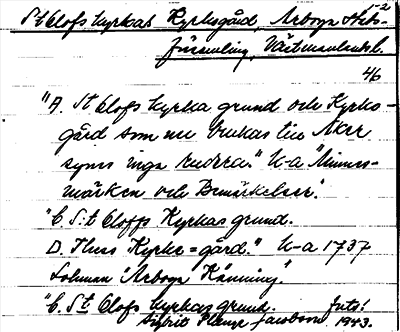 St Olofs kyrkas Kyrkogård, Arboga Stads- 1-2
församling, Västmanland.
4/6
"A. St Olofs kyrka grund och Kyrko-
gård som nu brukas till Åker
synes inga rudera." U-a "Minnes-
märken och Bemärkelser".
"C. S:t Oloffs Kyrkas grund.
D. Thess Kyrke=gård." U-a 1737
Lohman "Arboga Känning".
"C. St Olofs kyrkas grund. foto:
Sigrid Jacobson 1943.